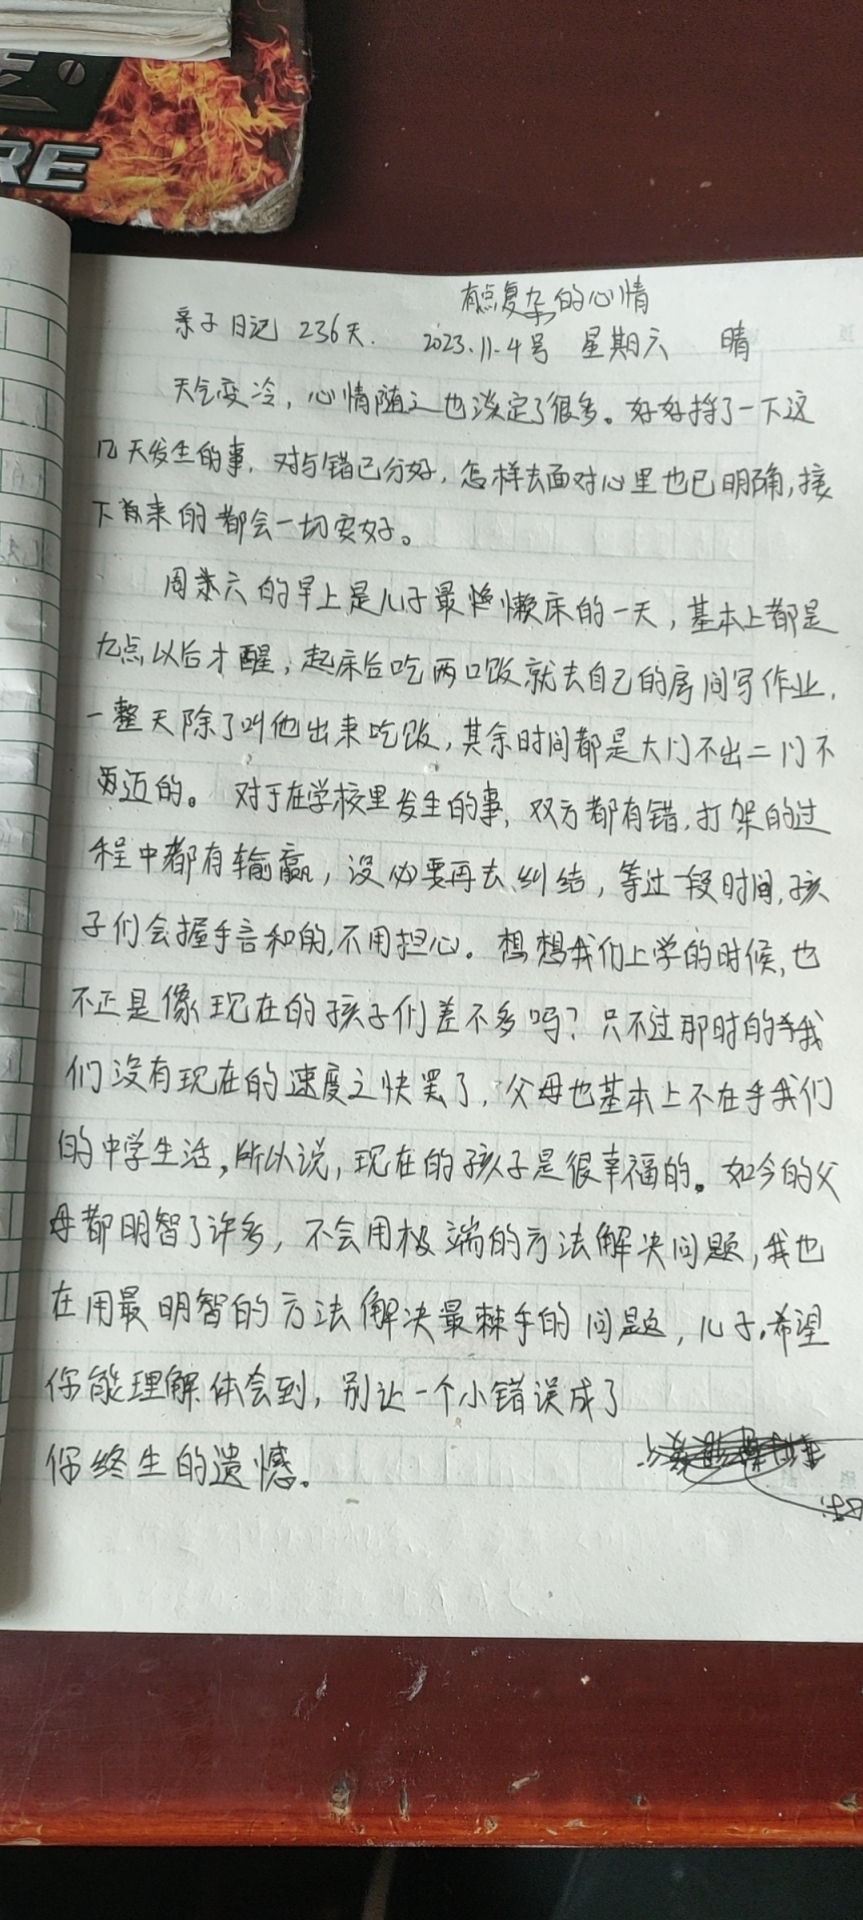 RE
有点复杂的心情
亲子日记 236天. 2023.11.4号 星期六 晴
天气变冷，心情随之也淡定了很多。好好捋了一下这
几天发生的事，对与错已分好，怎样去面对心里也已明确，接
下来的都会一切安好。
周六的早上是儿子最懒床的一天，基本上都是
九点以后才醒，起床后吃两口饭就去自己的房间写作业，
一整天除了叫他出来吃饭，其余时间都是大门不出二门不
迈的。对于在学校里发生的事，双方都有错，打架的过
程中都有输赢，没必要再去纠结，等过一段时间，孩
子们会握手言和的，不用担心。想想我们上学的时候，也
不正是像现在的孩子们差不多吗？只不过那时的我
们没有现在的速度之快罢了，父母也基本上不在乎我们
的中学生活，所以说，现在的孩子是很幸福的。如今的父
母都明智了许多，不会用极端的方法解决问题，我也
在用最明智的方法解决最棘手的问题，儿子，希望
你能理解体会到，别让一个小错误成了
你终生的遗憾。